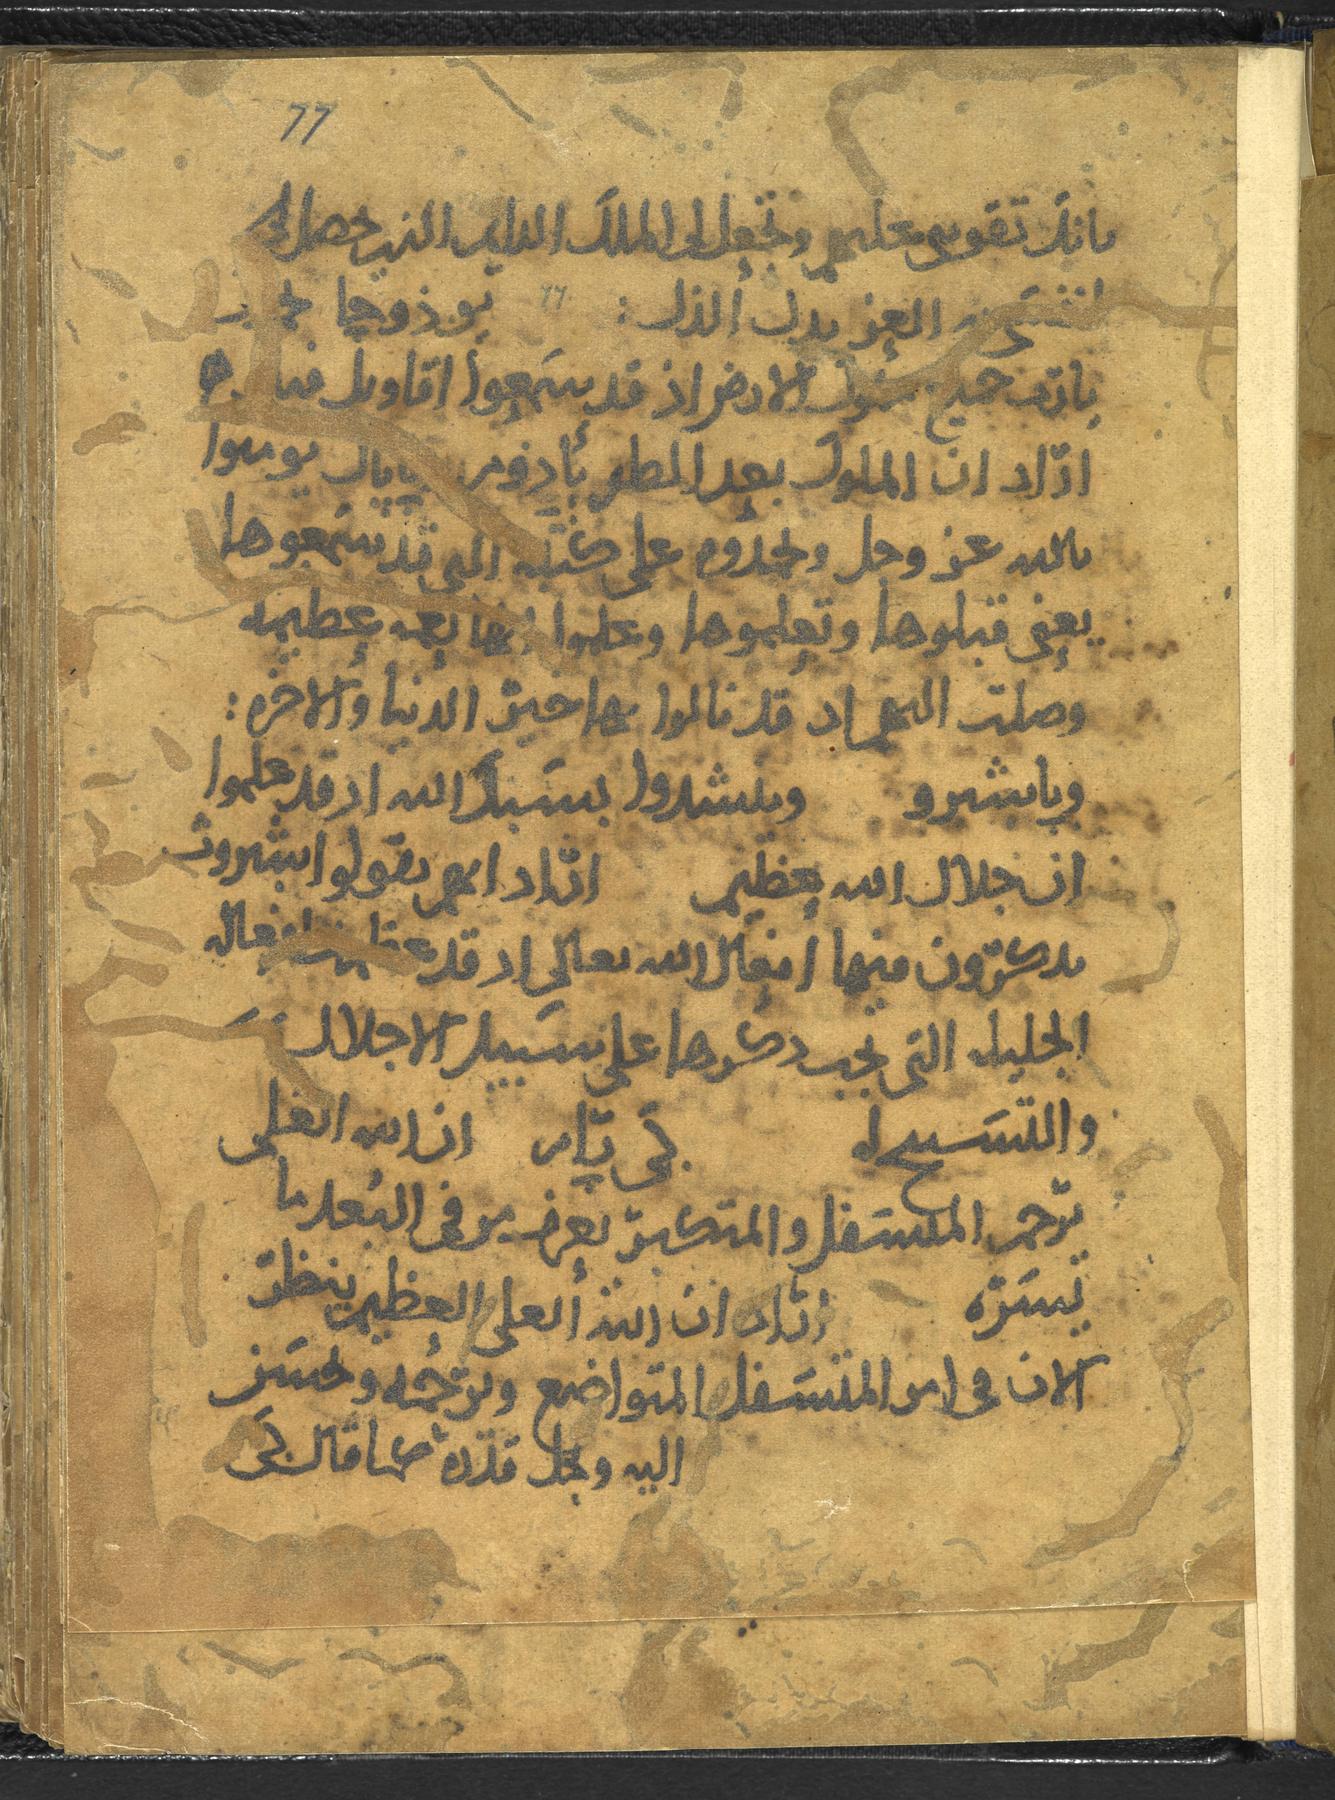 77
بانك تقوسى عليهم وتجعل لى الملك الدليل الذى حصل لى
العز بدل الذل : ٦٦ يوذوخا
يا رب جميع ملوك الارض اذ قد سمعوا اقاويل
اراد ان الملوك بعد المطو يومنوا
بالله عز وجل ويحمدوه على التى قد سمعوها
يعنى قبلوها وتعلموها وعلموا انها نعمه عظيمه
وصلت اليهم اذ قد نالوا بها خير الدنيا والاخره :
وياشيرو وينشدوا بسبل الله اذ قد علموا
ان جلال الله عظيم اراد انهم يقولوا اشيروث
يدكرون فيها افعال الله تعالى اذ قد افعاله
الجليله التى يجب دكرها على سبيل الاجلال
والتسبيح له كى رام ان الله العلى
يرحم المتسفل والمتكبر يعرف من فى البعد ما
يسره اراد ان الله العلى العظيم ينظر
الان فى امر المتسفل المتواضع ويرحمه ويحسن
اليه ويجل قدره كما قال كى